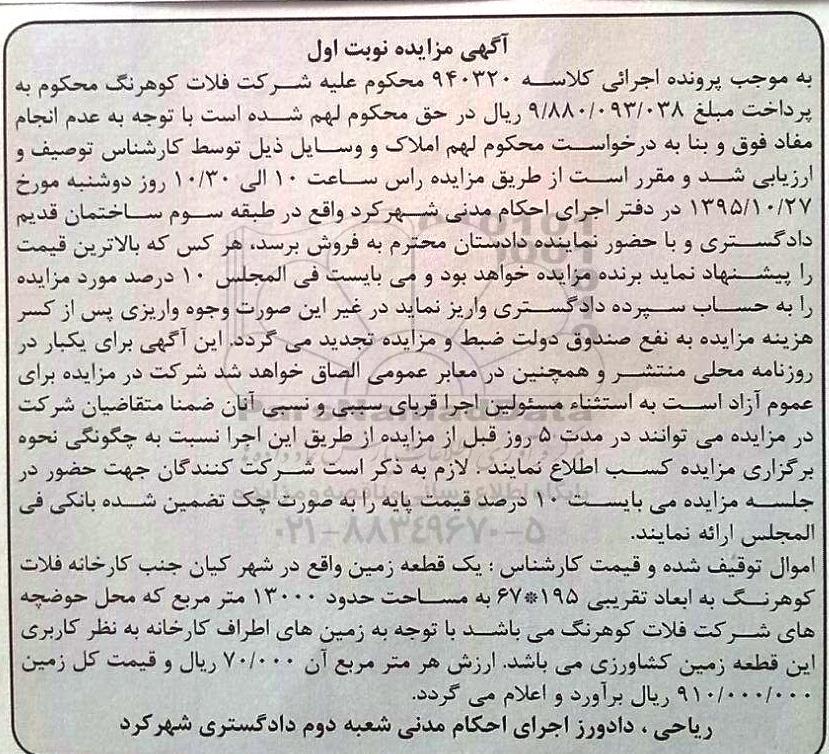 آگهی مزایده نوبت اول
به موجب پرونده اجرائی کلاسه ۹۴۰۳۲۰ محکوم علیه شرکت فلات کوهرنگ محکوم به
پرداخت مبلغ ۹/۸۸۰/۰۹۳/۰۳۸ ریال در حق محکوم لهم شده است با توجه به عدم انجام
مفاد فوق و بنا به درخواست محکوم لهم املاک و وسایل ذیل توسط کارشناس توصیف و
ارزیابی شد و مقرر است از طریق مزایده راس ساعت ۱۰ الی ۱۰/۳۰ روز دوشنبه مورخ
۱۳۹۵/۱۰/۲۷ در دفتر اجرای احکام مدنی شهرکرد واقع در طبقه سوم ساختمان قدیم
دادگستری و با حضور نماینده دادستان محترم به فروش برسد، هر کس که بالاترین قیمت
را پیشنهاد نماید برنده مزایده خواهد بود و می بایست فی المجلس ۱۰ درصد مورد مزایده
را به حساب سپرده دادگستری واریز نماید در غیر این صورت وجوه واریزی پس از کسر
هزینه مزایده به نفع صندوق دولت ضبط و مزایده تجدید می گردد. این آگهی برای یکبار در
روزنامه محلی منتشر و همچنین در معابر عمومی الصاق خواهد شد شرکت در مزایده برای
عموم آزاد است به استثناء مسئولین اجرا قربای سببی و نسبی آنان ضمنا متقاضیان شرکت
در مزایده می توانند در مدت ۵ روز قبل از مزایده از طریق این اجرا نسبت به چگونگی نحوه
برگزاری مزایده کسب اطلاع نمایند. لازم به ذکر است شرکت کنندگان جهت حضور در
جلسه مزایده می بایست ۱۰ درصد قیمت پایه را به صورت چک تضمین شده بانکی فی
المجلس ارائه نمایند.
اموال توقیف شده و قیمت کارشناس : یک قطعه زمین واقع در شهر کیان جنب کارخانه فلات
کوهرنگ به ابعاد تقریبی ۱۹۵*۶۷ به مساحت حدود ۱۳۰۰۰ متر مربع که محل حوضچه
های شرکت فلات کوهرنگ می باشد با توجه به زمین های اطراف کارخانه به نظر کاربری
این قطعه زمین کشاورزی می باشد. ارزش هر متر مربع آن ۷۰/۰۰۰ ریال و قیمت کل زمین
۹۱۰/۰۰۰/۰۰۰ ریال برآورد و اعلام می گردد.
ریاحی ، دادورز اجرای احکام مدنی شعبه دوم دادگستری شهرکرد
ParsNamadData
۰۲۱-۸۸۳۴۹۶۷۰-۵